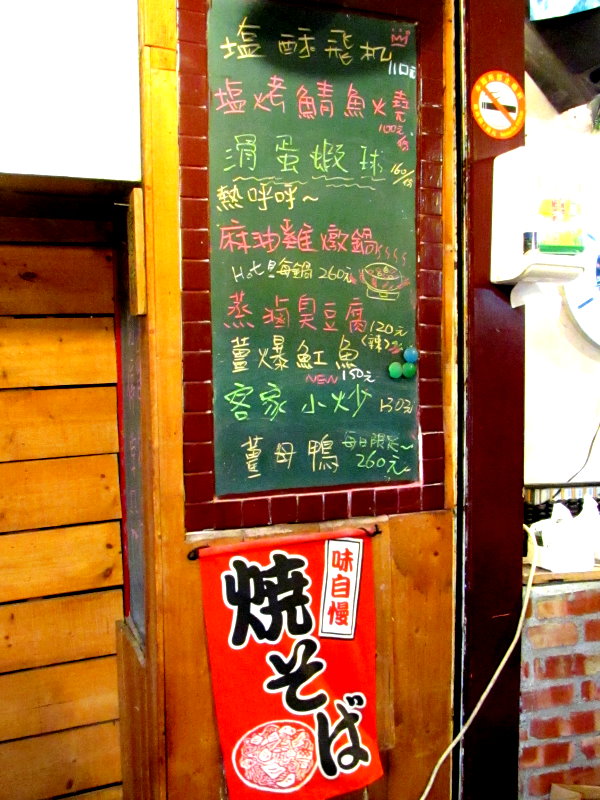 塩酥飛机
110元
塩烤鯖魚火堯
100元/份
滑蛋蝦球 160/份
熱呼呼~
麻油雞燉鍋
Hot!每鍋 260元
蒸滷臭豆腐 120元
(辣)
薑爆魟魚
NEW 150元
客家小炒 130元
薑母鴨 每日限定~
260元
味自慢
焼そば